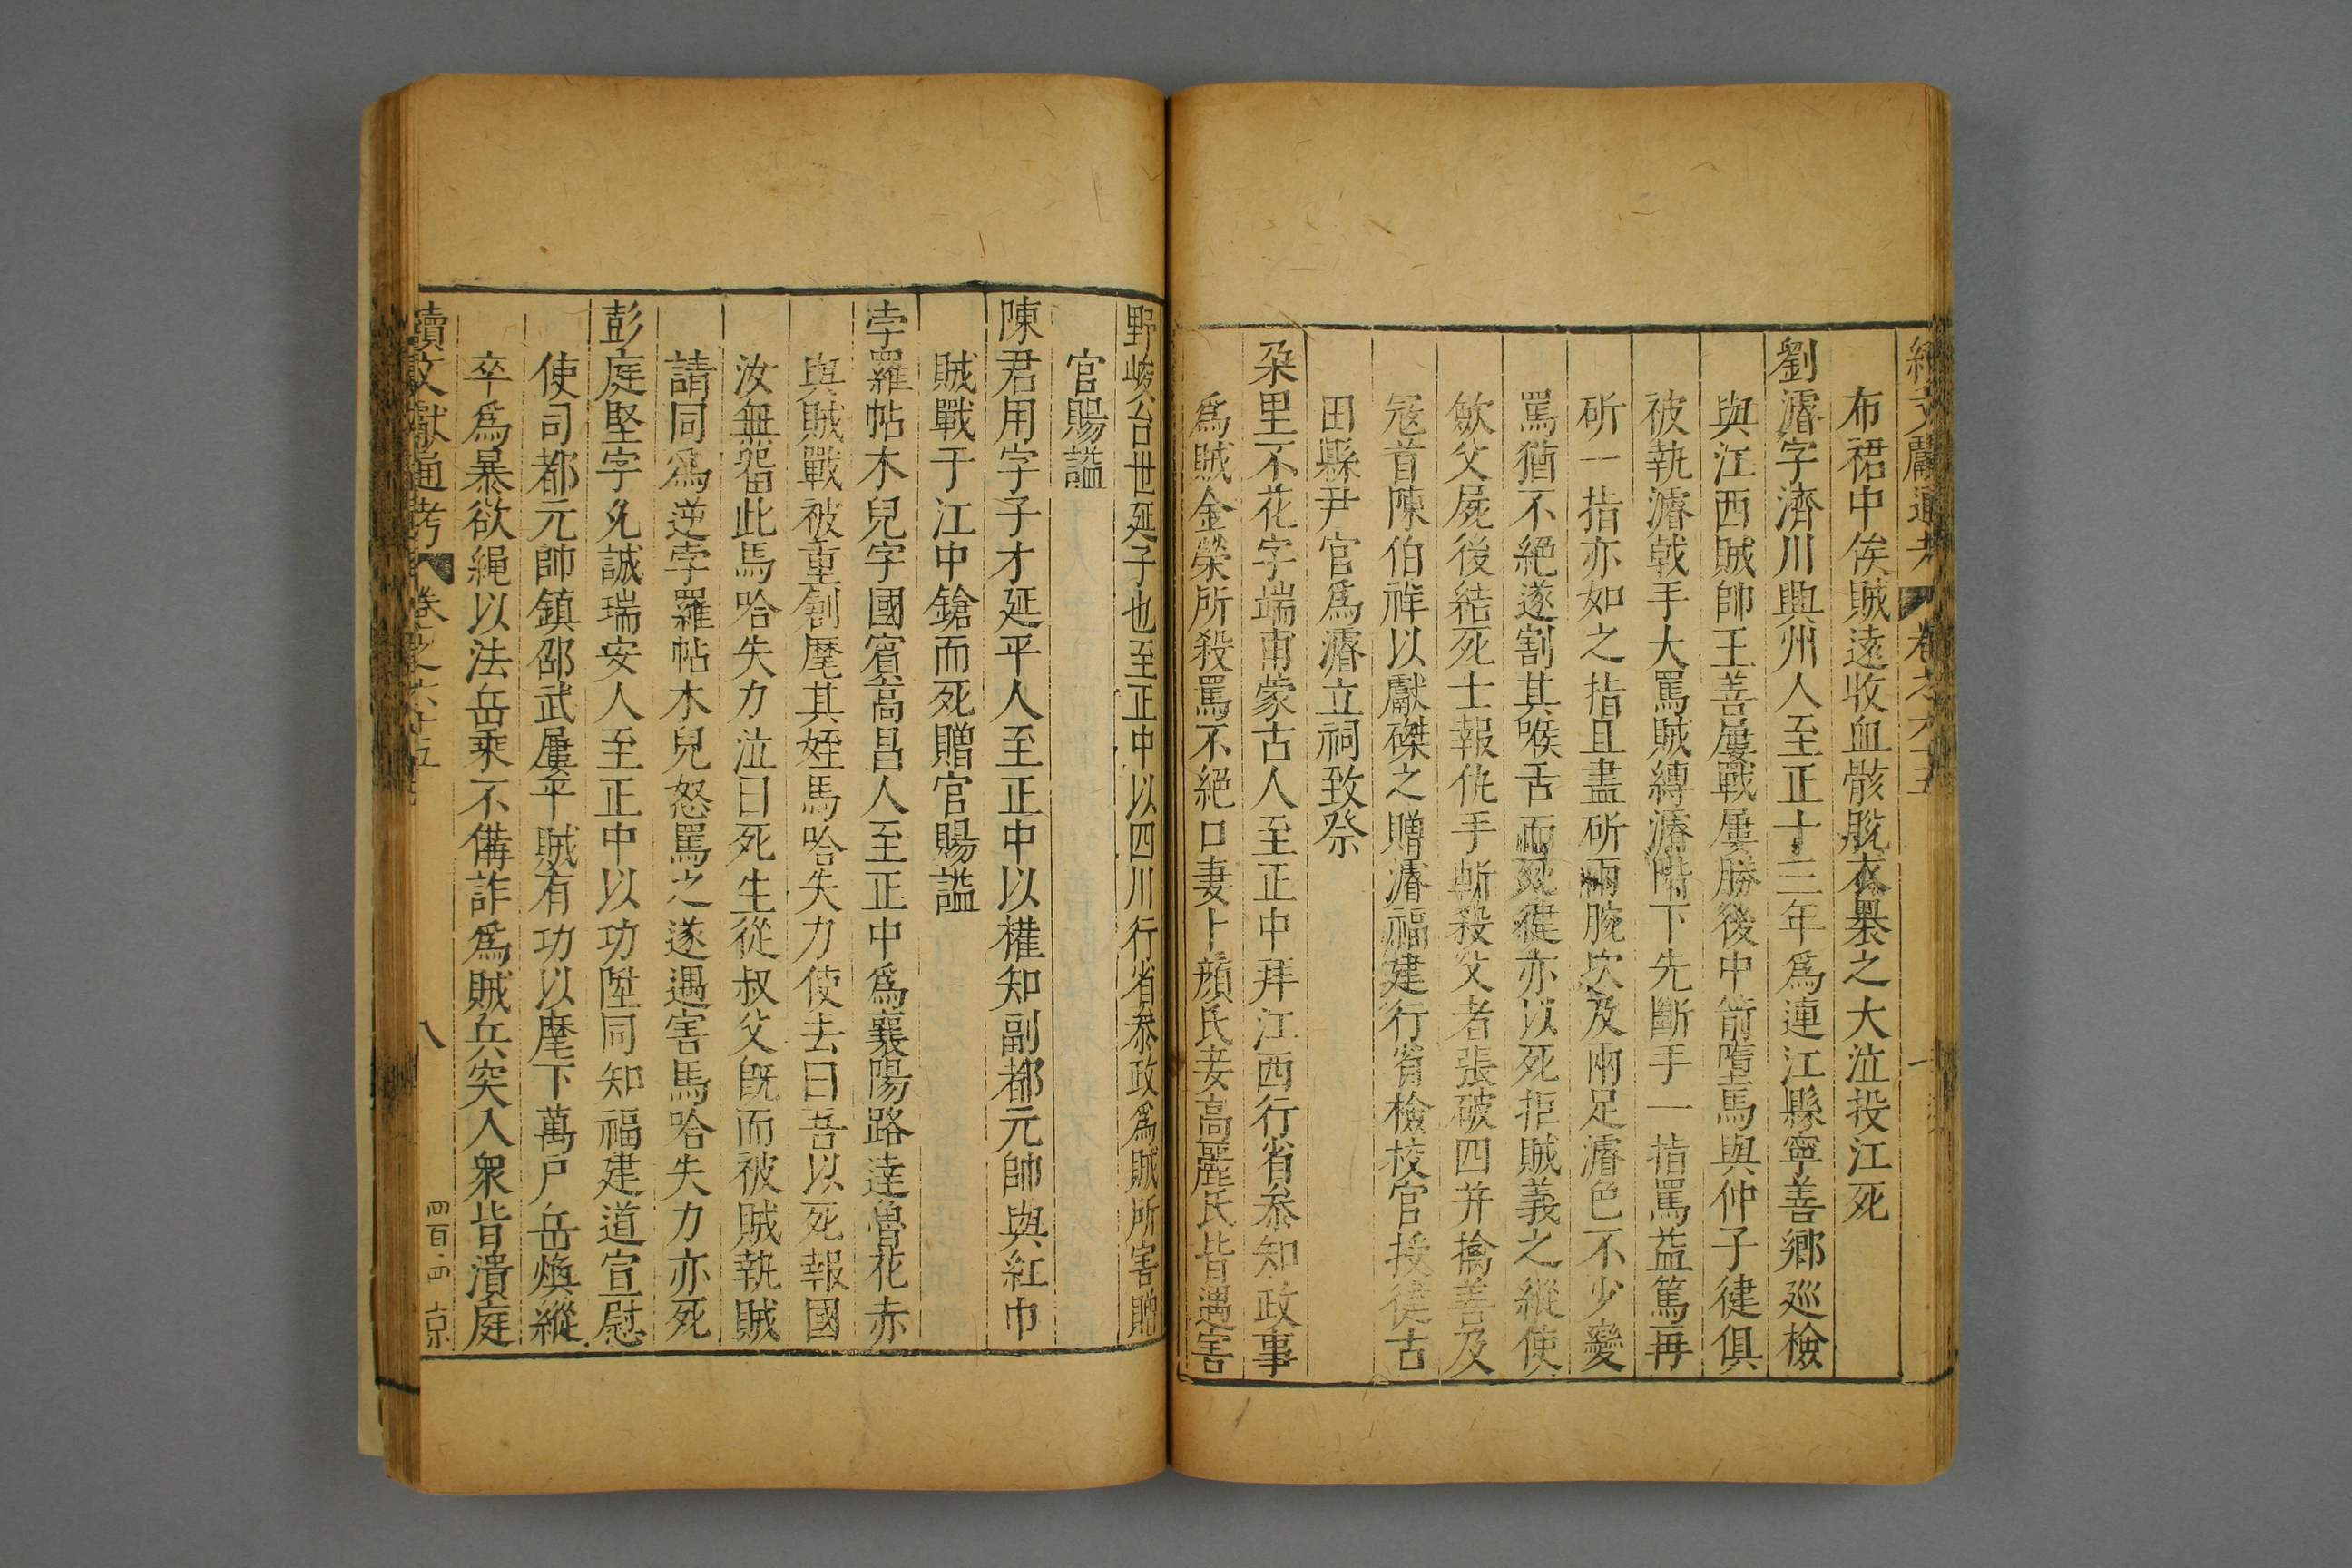 續文獻通考 卷之六十五
布裙中俟賊遠收血骸脫衣裹之大泣投江死
劉濬字濟川興州人至正十三年爲連江縣寧善鄉巡檢
與江西賊帥王善屢戰屢勝後中箭墮馬與仲子健俱
被執濬戟手大罵賊縛濬階下先斷手一指罵益篤再
斫一指亦如之指且盡斫兩腕次及兩足濬色不少變
罵猶不絕遂割其喉舌而死健亦以死拒賊義之縱使
歛父屍後結死士報仇手斬殺父者張破四并擒善及
冦首陳伯祥以獻磔之贈濬福建行省檢校官授健古
田縣尹官爲濬立祠致祭
朶里不花字端甫蒙古人至正中拜江西行省叅知政事
爲賊金榮所殺罵不絕口妻卜顏氏妾高麗氏皆遇害
野峻台世延子也至正中以四川行省叅政爲賊所害贈
官賜謚
陳君用字子才延平人至正中以權知副都元帥與紅巾
賊戰于江中鎗而死贈官賜謚
孛羅帖木兒字國賓高昌人至正中爲襄陽路達魯花赤
與賊戰被重創麾其姪馬哈失力使去曰吾以死報國
汝無畱此馬哈失力泣曰死生從叔父旣而被賊執賊
請同爲逆孛羅帖木兒怒罵之遂遇害馬哈失力亦死
彭庭堅字允誠瑞安人至正中以功陞同知福建道宣慰
使司都元帥鎮邵武屢平賊有功以麾下萬戶岳煥縱
卒爲暴欲繩以法岳乘不備詐爲賊兵突入衆皆潰庭
續文獻通考 卷之六十五 八 四百四 京